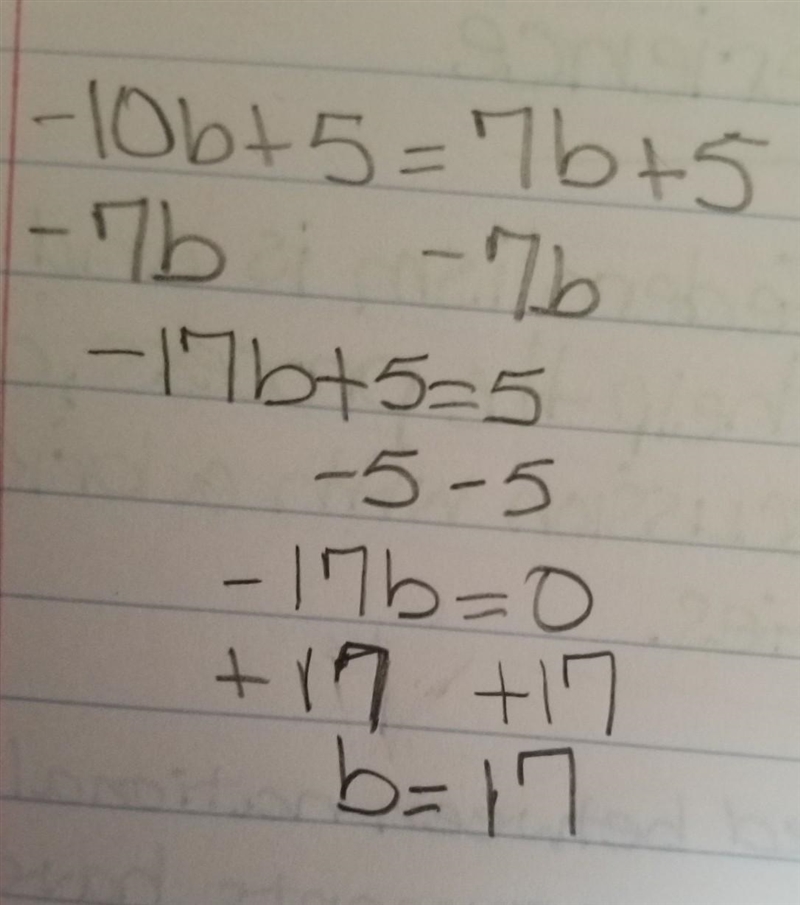 -10b+5=7b+5
-7b -7b
-17b+5=5
-5 -5
-17b=0
+17 +17
b=17